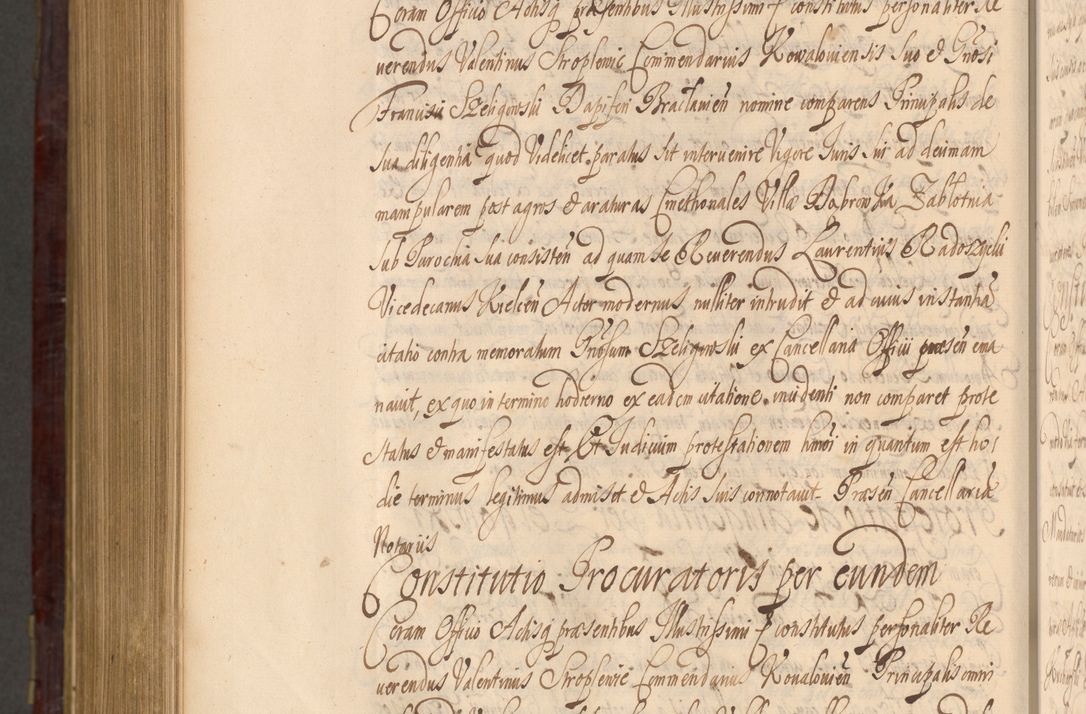 Coram Officio Actisq præsentibus Illustrissimi f constitutus personaliter Re
verendus Valentinus Stroplenic Commendarius Kowaloviensis Suo et Gnosi
Francisci Szeligowski Dapiferi Braclavien nomine comparens Principalis de
sua diligentia quod Videlicet paratus sit intervenire Vigore Juris sui ad decimam
manipularem post agros et araturas Cmethonales Villæ Dąbrowka Zabłotnia
sub Parochia sua consisten ad quam se Reverendus Laurentius Radoszycki
Vicedecanus Kielcen Actor modernus nulliter intrudit et ad cuius instantia
citatio contra memoratum Gnosum Szeligowski ex Cancellaria Officii præsen ema
navit, ex quo in termino hodierno ex eadem citatione incidenti non comparet prote
status et manifestatus est. Et Judicium protestationem hmoi in quantum est ho:
die terminus legitimus admisit et Actis suis connotavit. Præsen Cancellariæ
Notariis
Constitutio Procuratoris per eundem
Coram Officio Actisq præsentibus Illustrissimi f constitutus personaliter Re
verendus Valentinus Stroplenic Commendarius Kovalovien Principalis omni